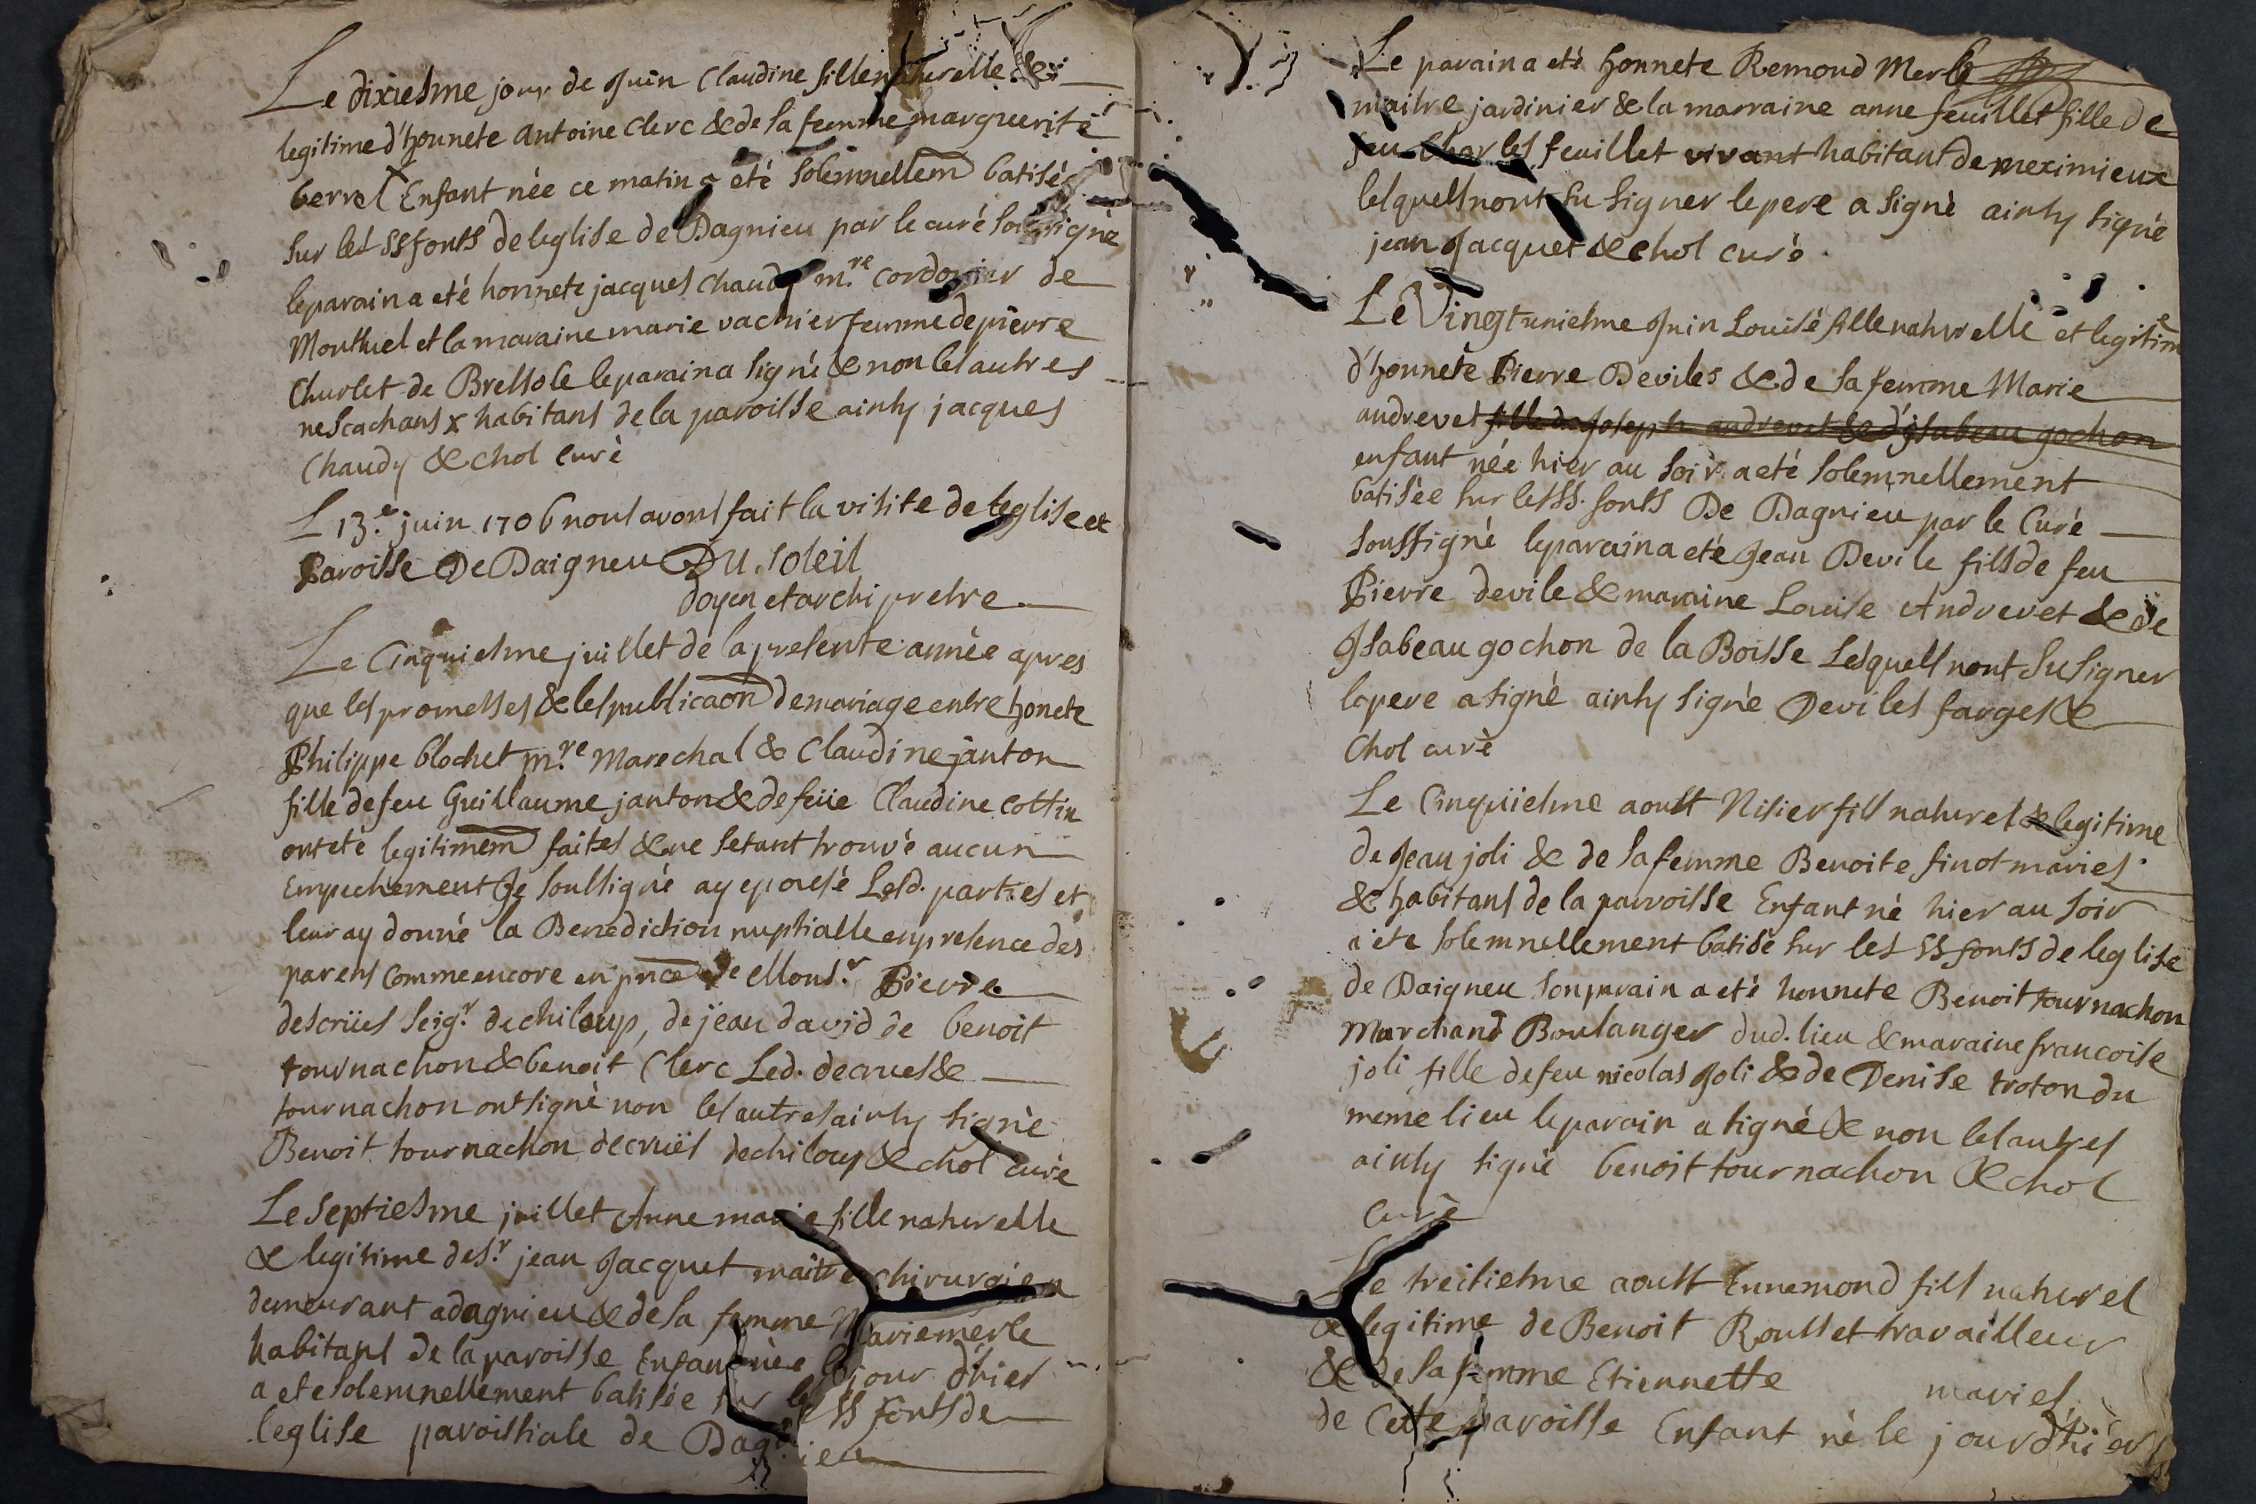 Le dixiesme jour de Juin Claudine fille naturelle &
legitime d'honnete antoine clerc & de sa femme marguerite
berrel Enfant née ce matin a eté solemnellem batisée
sur les SS fonts de leglise de Dagnieu par le curé soussigné
le parain a eté honnete jacques chaudy m.re cordonier de
Montluel et la maraine marie vachier femme de pierre
Churlet de Bressole le parain a signé & non les autres
ne scachans x habitans de la paroisse ainsy jacques
Chaudy & chol curé
L 13.e juin 1706 nous avons fait la visite de leglise et
Paroisse De Daigneu DU Soleil
doyen et archipretre
Le Cinquiesme juillet de la presente année apres
que les promesses & les publicaon de mariage entre honete
Philippe blochet m.re Marechal & Claudine janton
fille de feu Guillaume janton & de feüe Claudine Cottin
ont eté legitimem faites & ne setant trouvé aucun
Empechement Je soussigné ay epousé Lesd. parties et
leur ay donné la Benediction nuptialle en presence des
parens comme encore en pnce de Mons.r Pierre
descrües seig.r de chiloup, de jean david de benoit
tournachon & benoit Clerc Led. decrues &
tournachon ont signé non les autres ainsy signé
Benoit tournachon decrües dechiloup & chol curé
Le septiesme juillet Anne marie fille naturelle
& legitime de s.r jean Jacquet maitre chirurgien
demeurant a dagnieu & de sa femme Marie merle
habitans de la paroisse Enfant née le jour d'hier
a eté solemnellement batisée sur les SS fonts de
leglise paroissiale de Dagnieu
Le parain a eté honnete Remond Merle
maitre jardinier & la marraine anne feuillet fille de
feu Charles feuillet vivant habitant de meximieux
lesquels nont su signer le pere a signé ainsy signé
jean Jacquet & chol curé
Le Vingt uniesme Juin Louise fille naturelle et legitime
d'honnete Pierre Deviles & de sa femme Marie
andrevet fille de Joseph andrevet & d'isabeau gochon
enfant née hier au soir a eté solemnellement
batisée sur les SS. fonts De Dagnieu par le Curé
soussigné le parain a eté Jean Devile fils de feu
Pierre devile & maraine Louise Andrevet & de
Isabeau gochon de la Boisse Lesquels nont su signer
le pere a signé ainsy signé Deviles farges &
Chol curé
Le Cinquiesme aoust Nisier fils naturel & legitime
de Jean joli & de sa femme Benoite finot mariés
& habitans de la parroisse Enfant né hier au soir
a eté solemnellement batisé sur les SS fonts de leglise
de Daigneu son parain a eté honnete Benoit tournachon
Marchand Boulanger dud. lieu & maraine francoise
joli fille de feu nicolas Joli & de Denise troton du
meme lieu le parain a signé & non les autres
ainsy signé benoit tournachon & chol
curé
Le treisiesme aoust Ennemond fils naturel
& legitime de Benoit Rousset travailleur
& de sa femme Etiennette mariés
de Cette paroisse Enfant né le jour d'hier